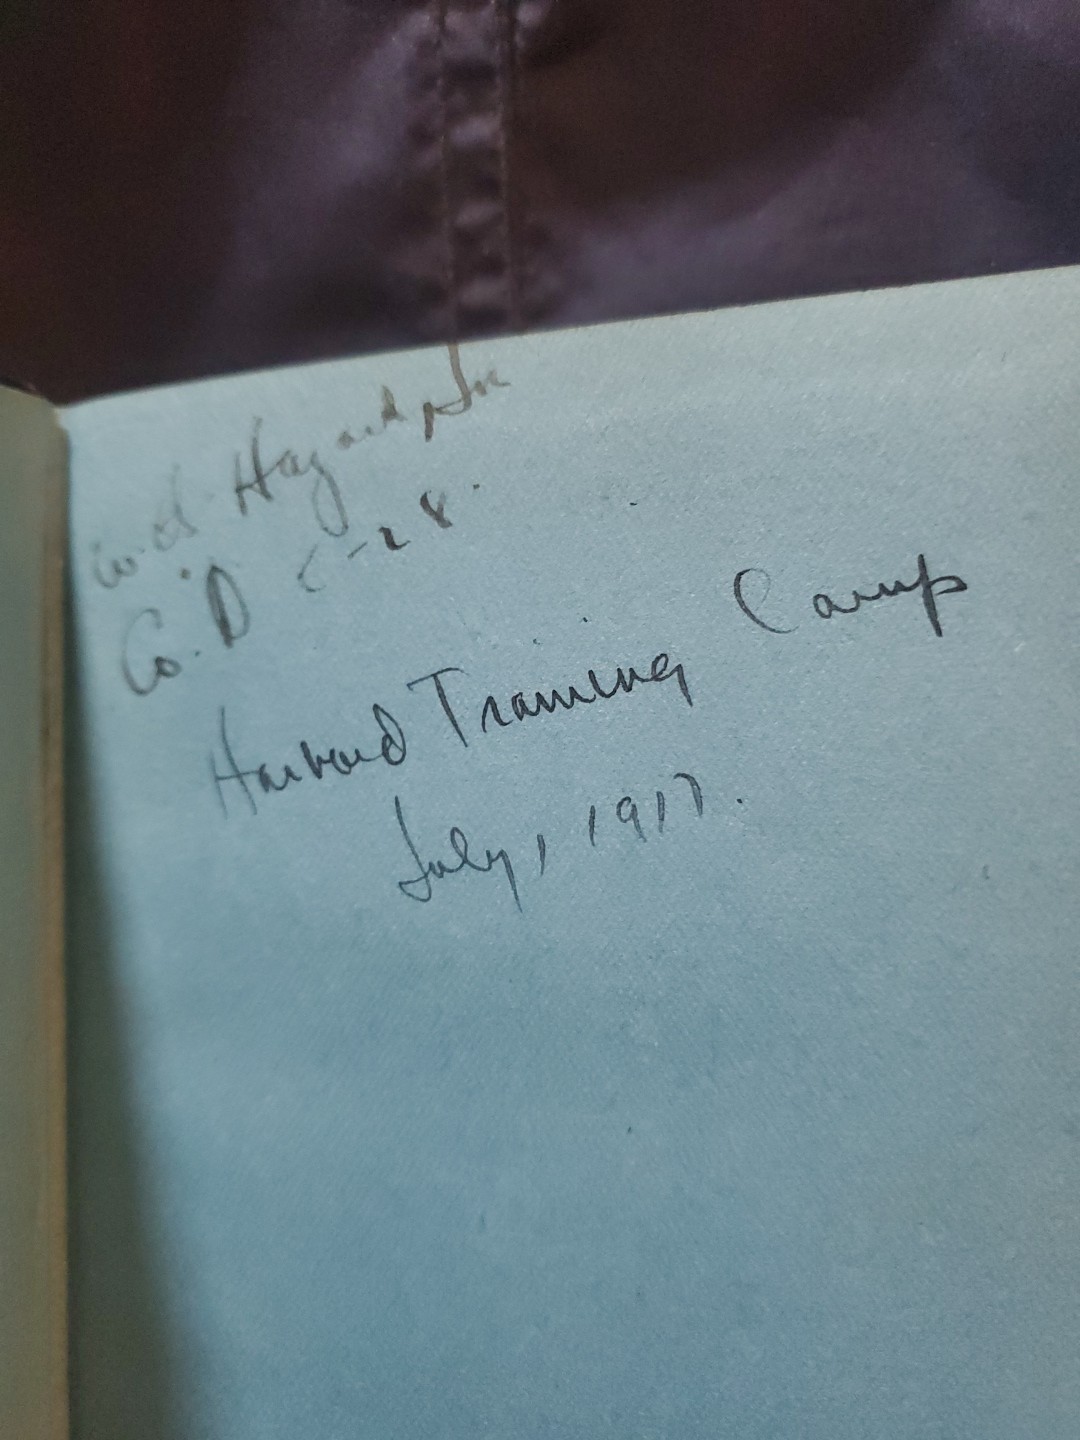 Hazard, Jr
Co. D C-28.
Harvard Training Camp
July, 1917.